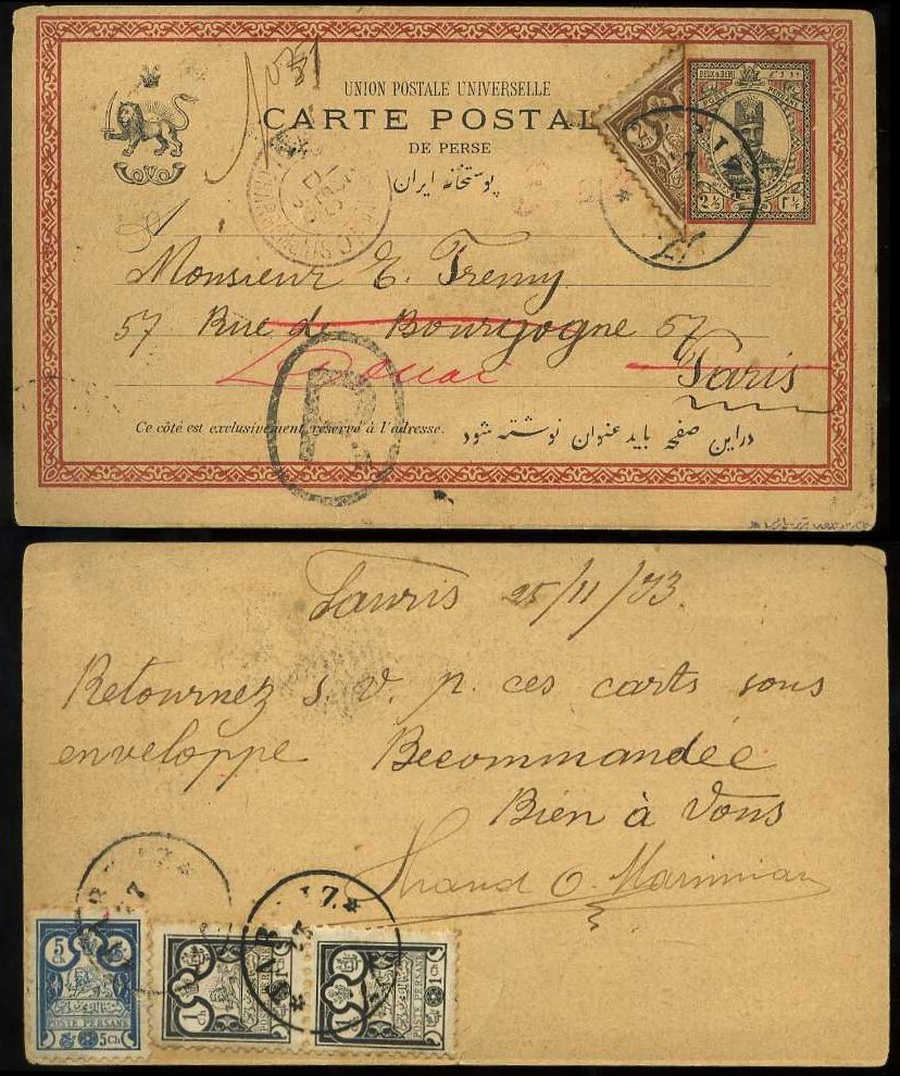 UNION POSTALE UNIVERSELLE
CARTE POSTAL
DE PERSE
پوستخانه ایران
2½
Monsieur E. Fremy
57 Rue de Bourgogne 57
Paris
Douai
R
Ce côté est exclusivement réservé à l'adresse.
دراین صفحه باید عنوان نوشته شود
Tauris 25/11/93.
Retournez s. v. p. ces carts sous
enveloppe Recommandée
Bien à Vous
5
POSTE PERSANE
5Ch
1
Ch
POSTE PERSANE
1
POSTE PERSANE
1Ch